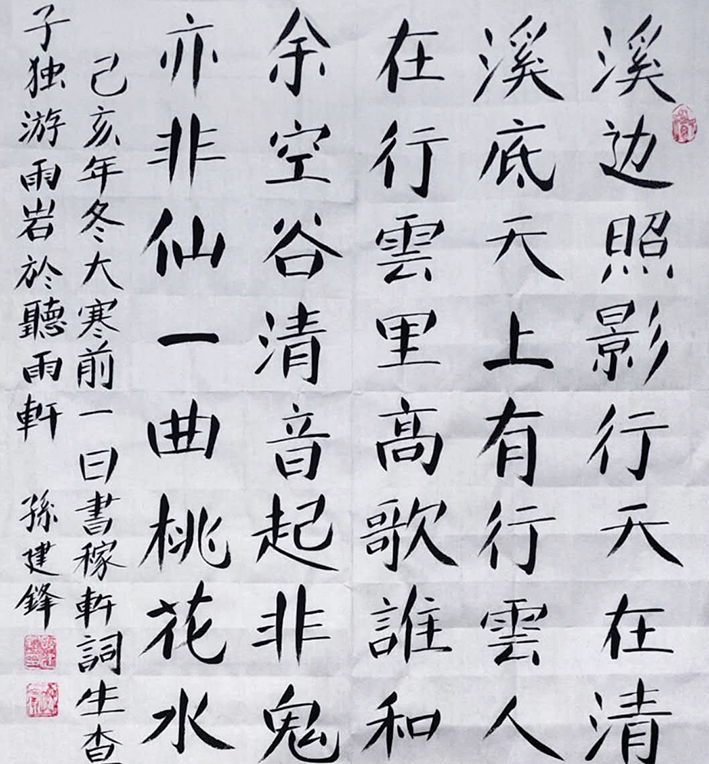 溪边照影行天在清
溪底天上有行雲人
在行雲里高歌誰和
余空谷清音起非鬼
亦非仙一曲桃花水
己亥年冬大寒前一日書稼軒詞生查
子独游雨岩於聽雨軒 孫建鋒